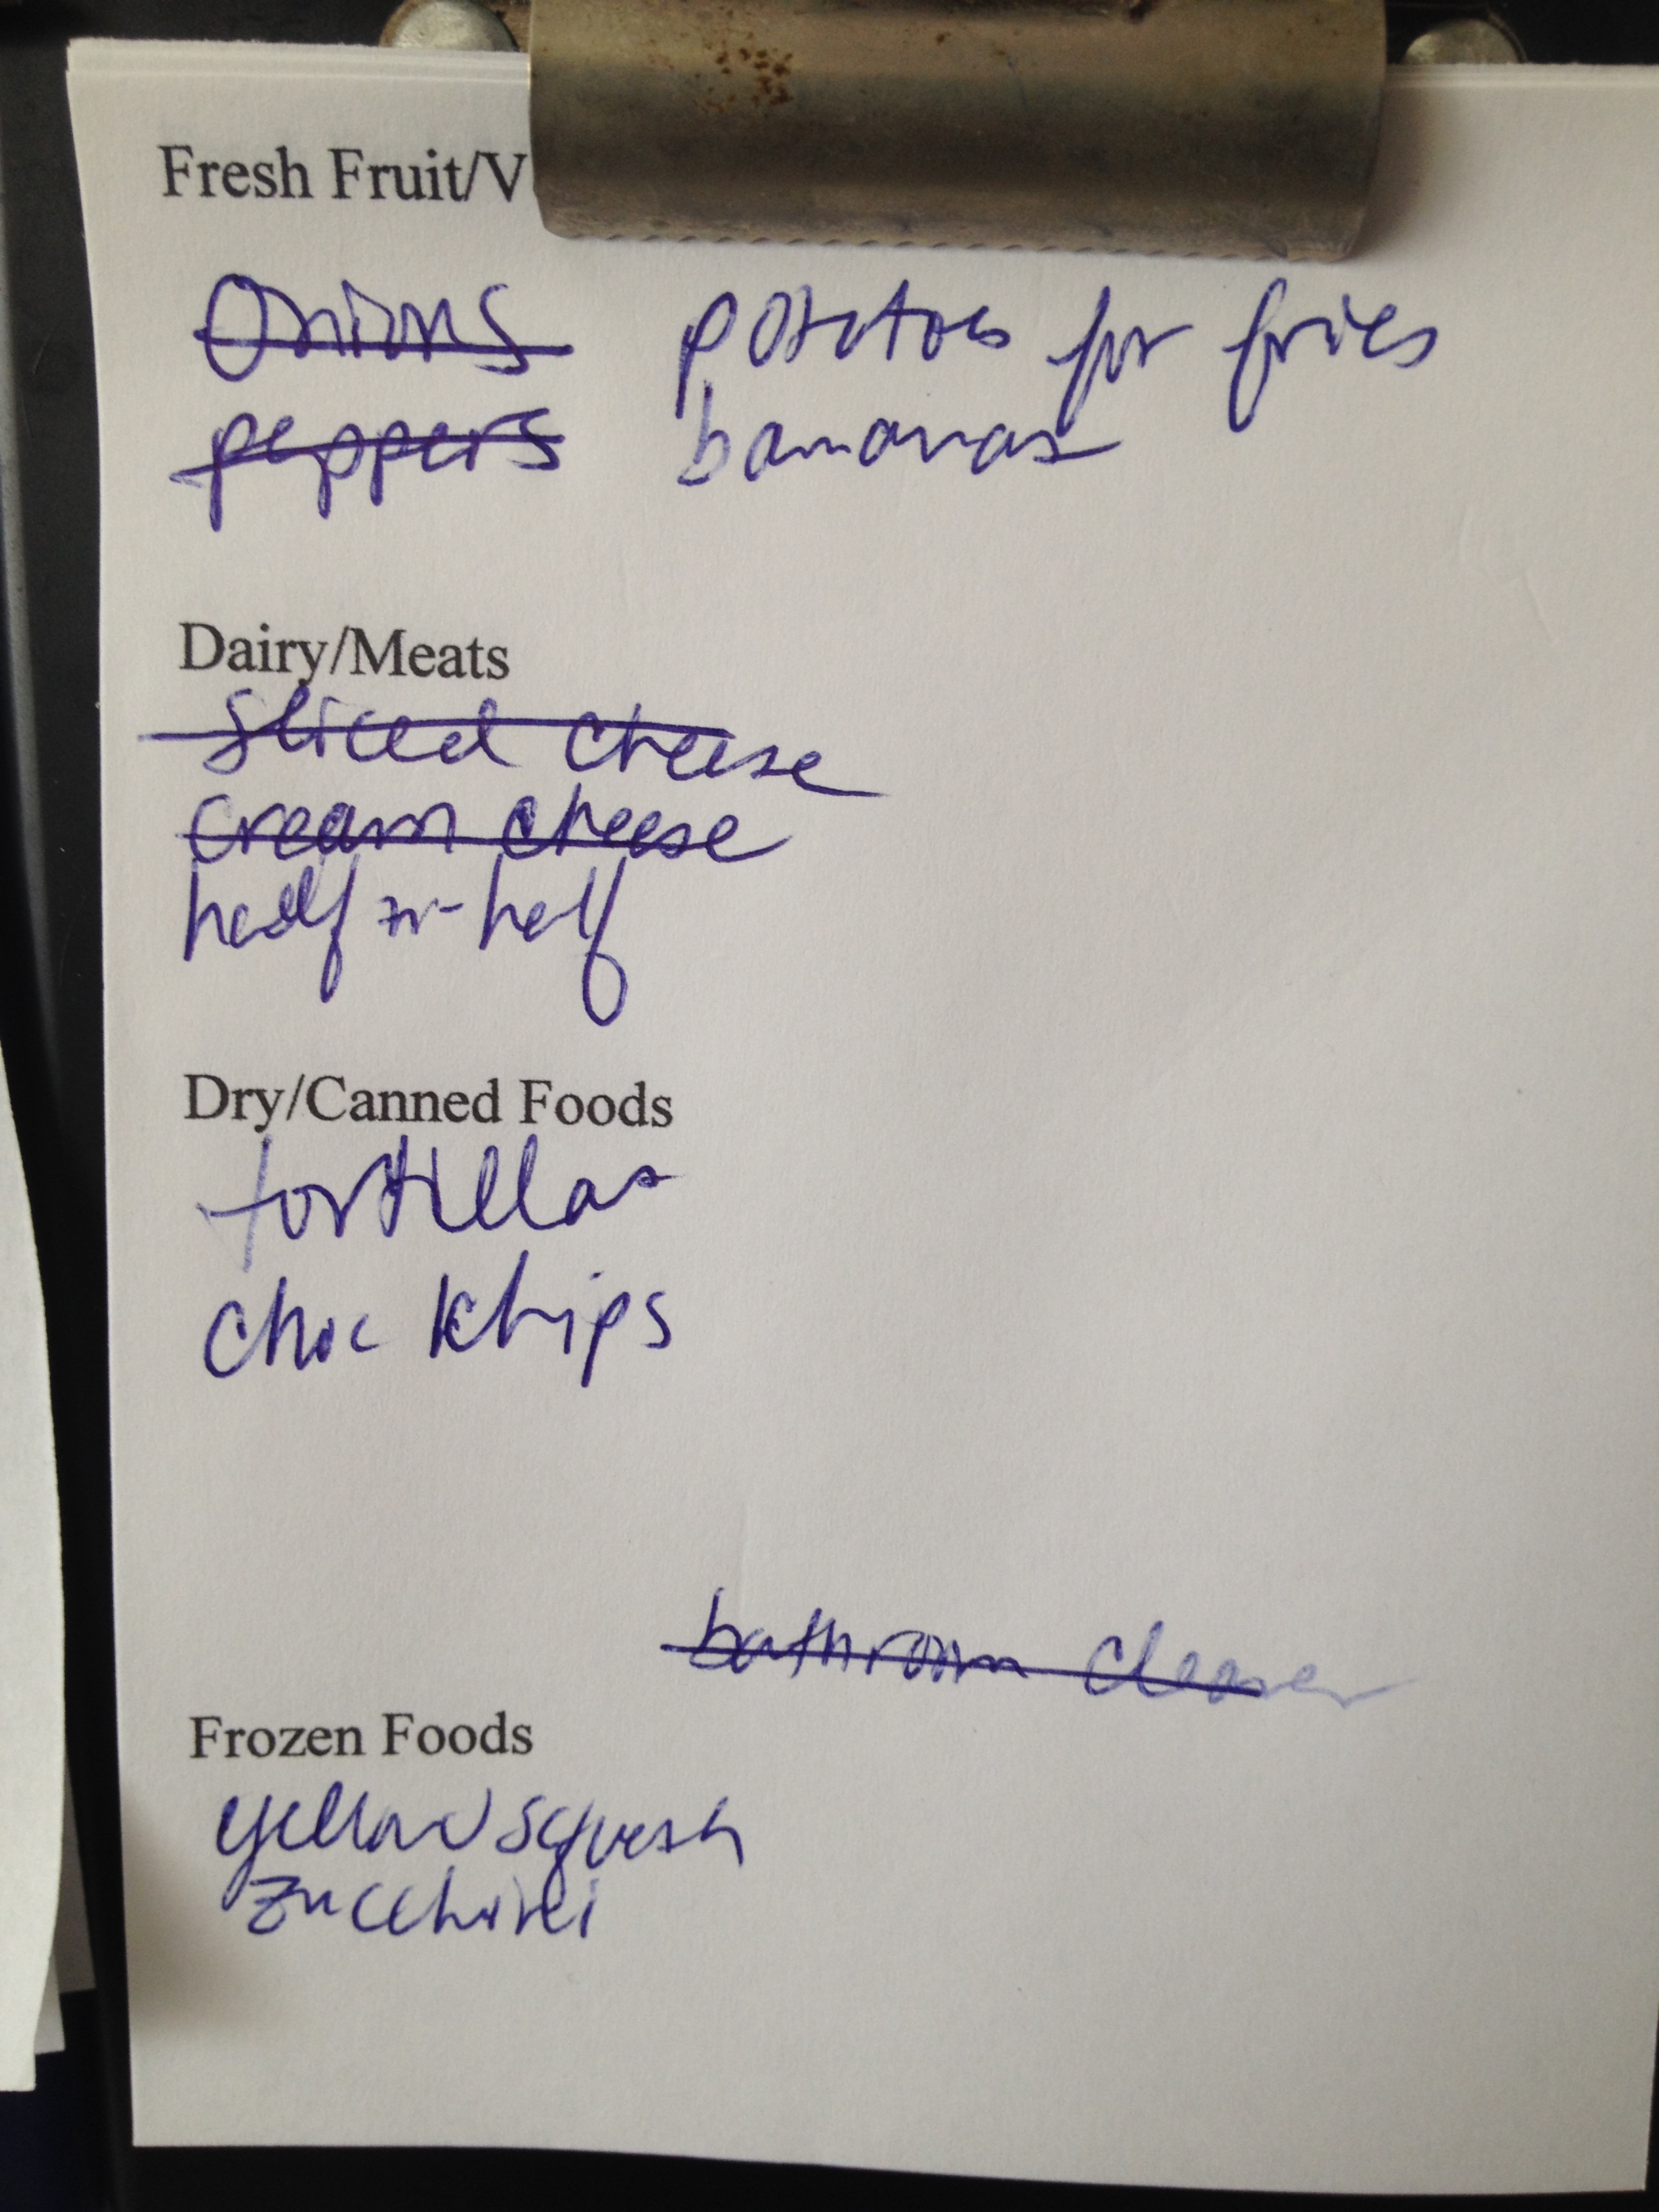 Fresh Fruit/V
Onions potatoes for fries
peppers bananas
Dairy/Meats
sliced cheese
cream cheese
half n half
Dry/Canned Foods
tortillas
choc chips
bathroom cleaner
Frozen Foods
yellow squash
zucchini